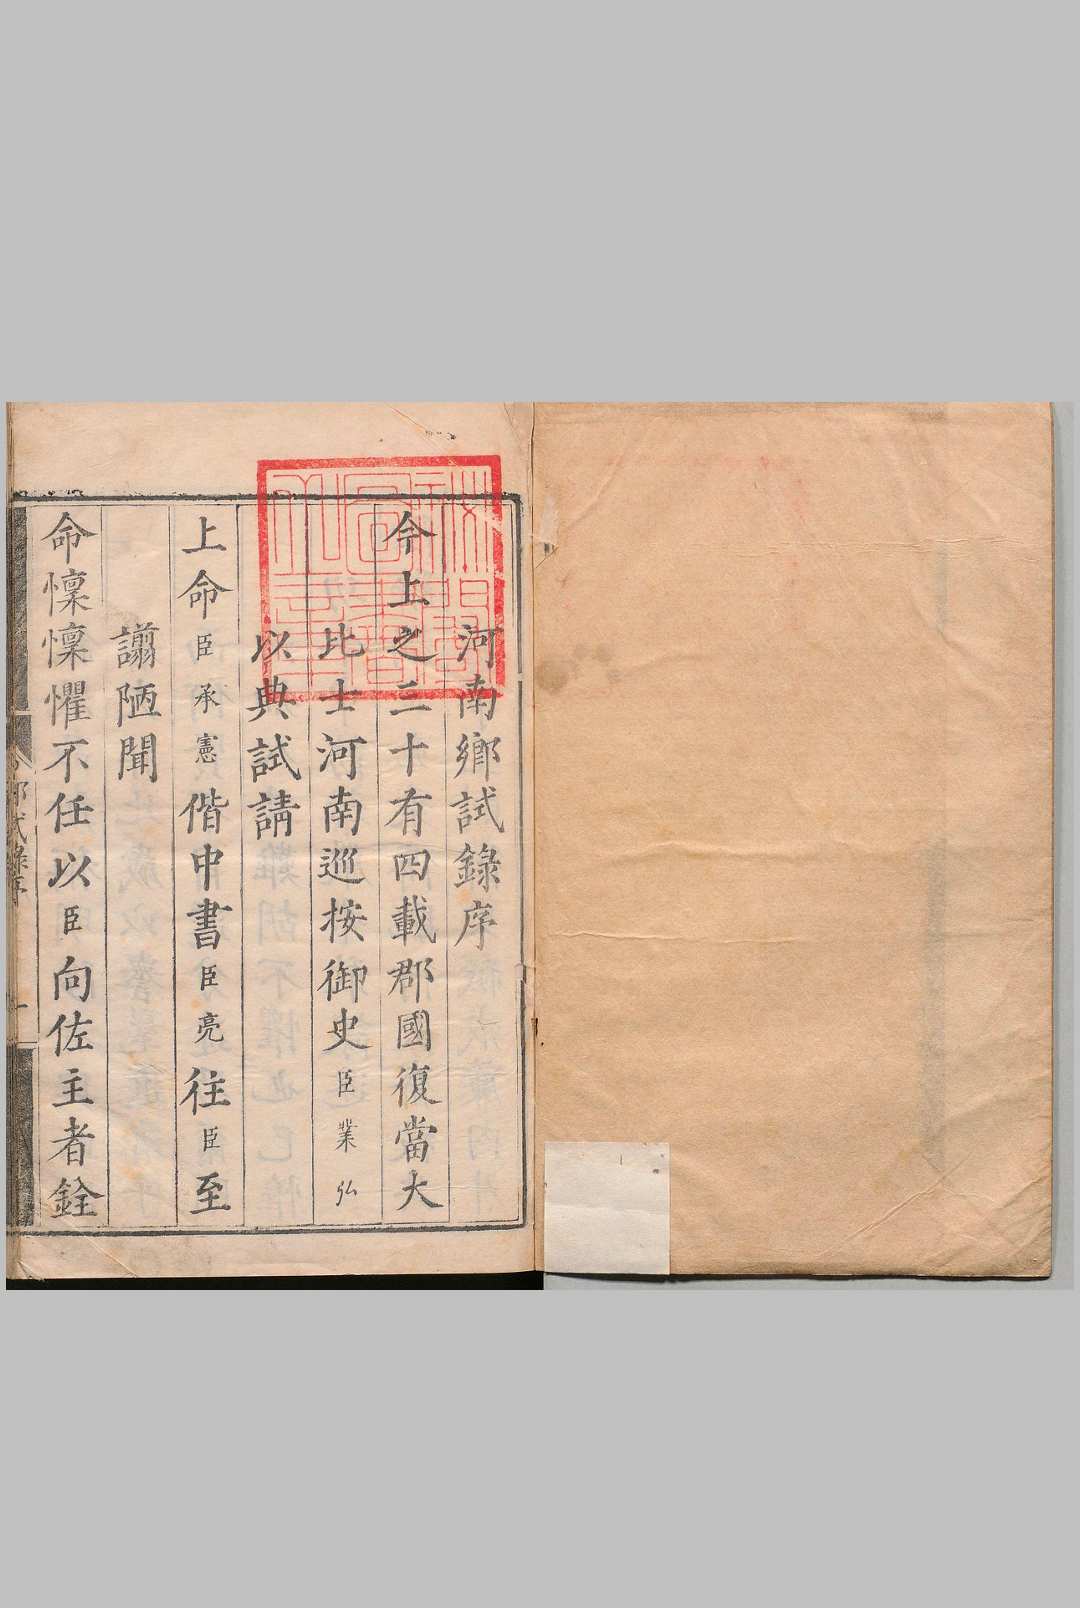 河南鄉試錄序
今上之三十有四載郡國復當大
比士河南巡按御史臣業弘
以典試請
上命臣承憲偕中書臣亮往臣至
謭陋聞
命懍懍懼不任以臣向佐主者銓
鄉試錄序
一
秘閣
圖書
之章